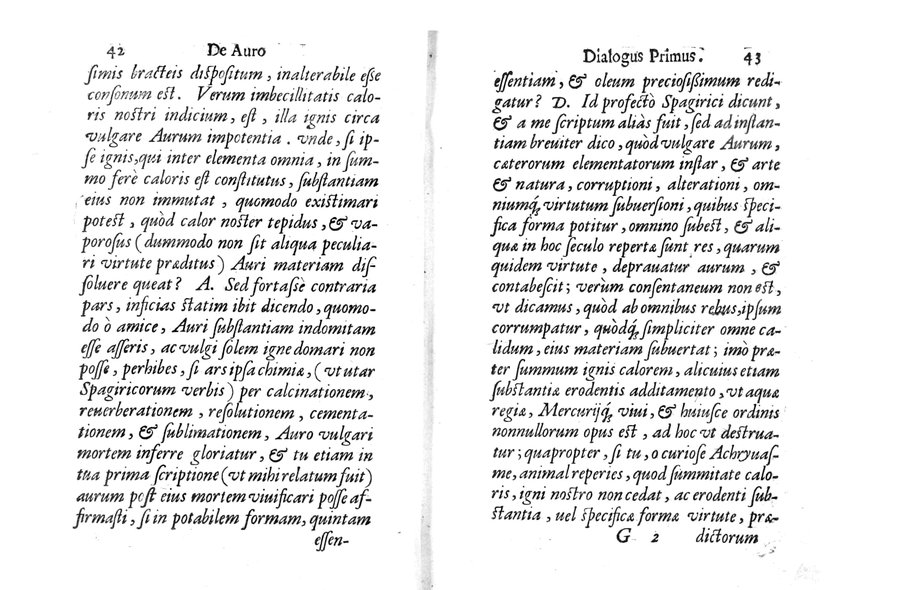 42 De Auro
simis bracteis dispositum, inalterabile esse
consonum est. Verum imbecillitatis calo-
ris nostri indicium, est, illa ignis circa
vulgare Aurum impotentia. vnde, si ip-
se ignis, qui inter elementa omnia, in sum-
mo ferè caloris est constitutus, substantiam
eius non immutat, quomodo existimari
potest, quòd calor noster tepidus, & va-
porosus (dummodo non sit aliqua peculia-
ri virtute præditus) Auri materiam dis-
soluere queat? A. Sed fortasse contraria
pars, inficias statim ibit dicendo, quomo-
do ò amice, Auri substantiam indomitam
esse asseris, ac vulgi solem igne domari non
posse, perhibes, si ars ipsa chimiæ, (vt utar
Spagiricorum verbis) per calcinationem,
reuerberationem, resolutionem, cementa-
tionem, & sublimationem, Auro vulgari
mortem inferre gloriatur, & tu etiam in
tua prima scriptione (vt mihi relatum fuit)
aurum post eius mortem viuificari posse af-
firmasti, si in potabilem formam, quintam
essen-
Dialogus Primus. 43
essentiam, & oleum preciosissimum redi-
gatur? D. Id profectò Spagirici dicunt,
& a me scriptum aliàs fuit, sed ad instan-
tiam breuiter dico, quòd vulgare Aurum,
cæterorum elementatorum instar, & arte
& natura, corruptioni, alterationi, om-
niumq́; virtutum subuersioni, quibus speci-
fica forma potitur, omnino subest, & ali-
quæ in hoc seculo repertæ sunt res, quarum
quidem virtute, deprauatur aurum, &
contabescit; verùm consentaneum non est,
vt dicamus, quòd ab omnibus rebus, ipsum
corrumpatur, quòdq́; simpliciter omne ca-
lidum, eius materiam subuertat; imò præ-
ter summum ignis calorem, alicuius etiam
substantiæ erodentis additamento, vt aquæ
regiæ, Mercurijq́; viui, & huiusce ordinis
nonnullorum opus est, ad hoc vt destrua-
tur; quapropter, si tu, o curiose Achryuas-
me, animal reperies, quod summitate calo-
ris, igni nostro non cedat, ac erodenti sub-
stantia, uel specificæ formæ virtute, præ-
G 2 dictorum